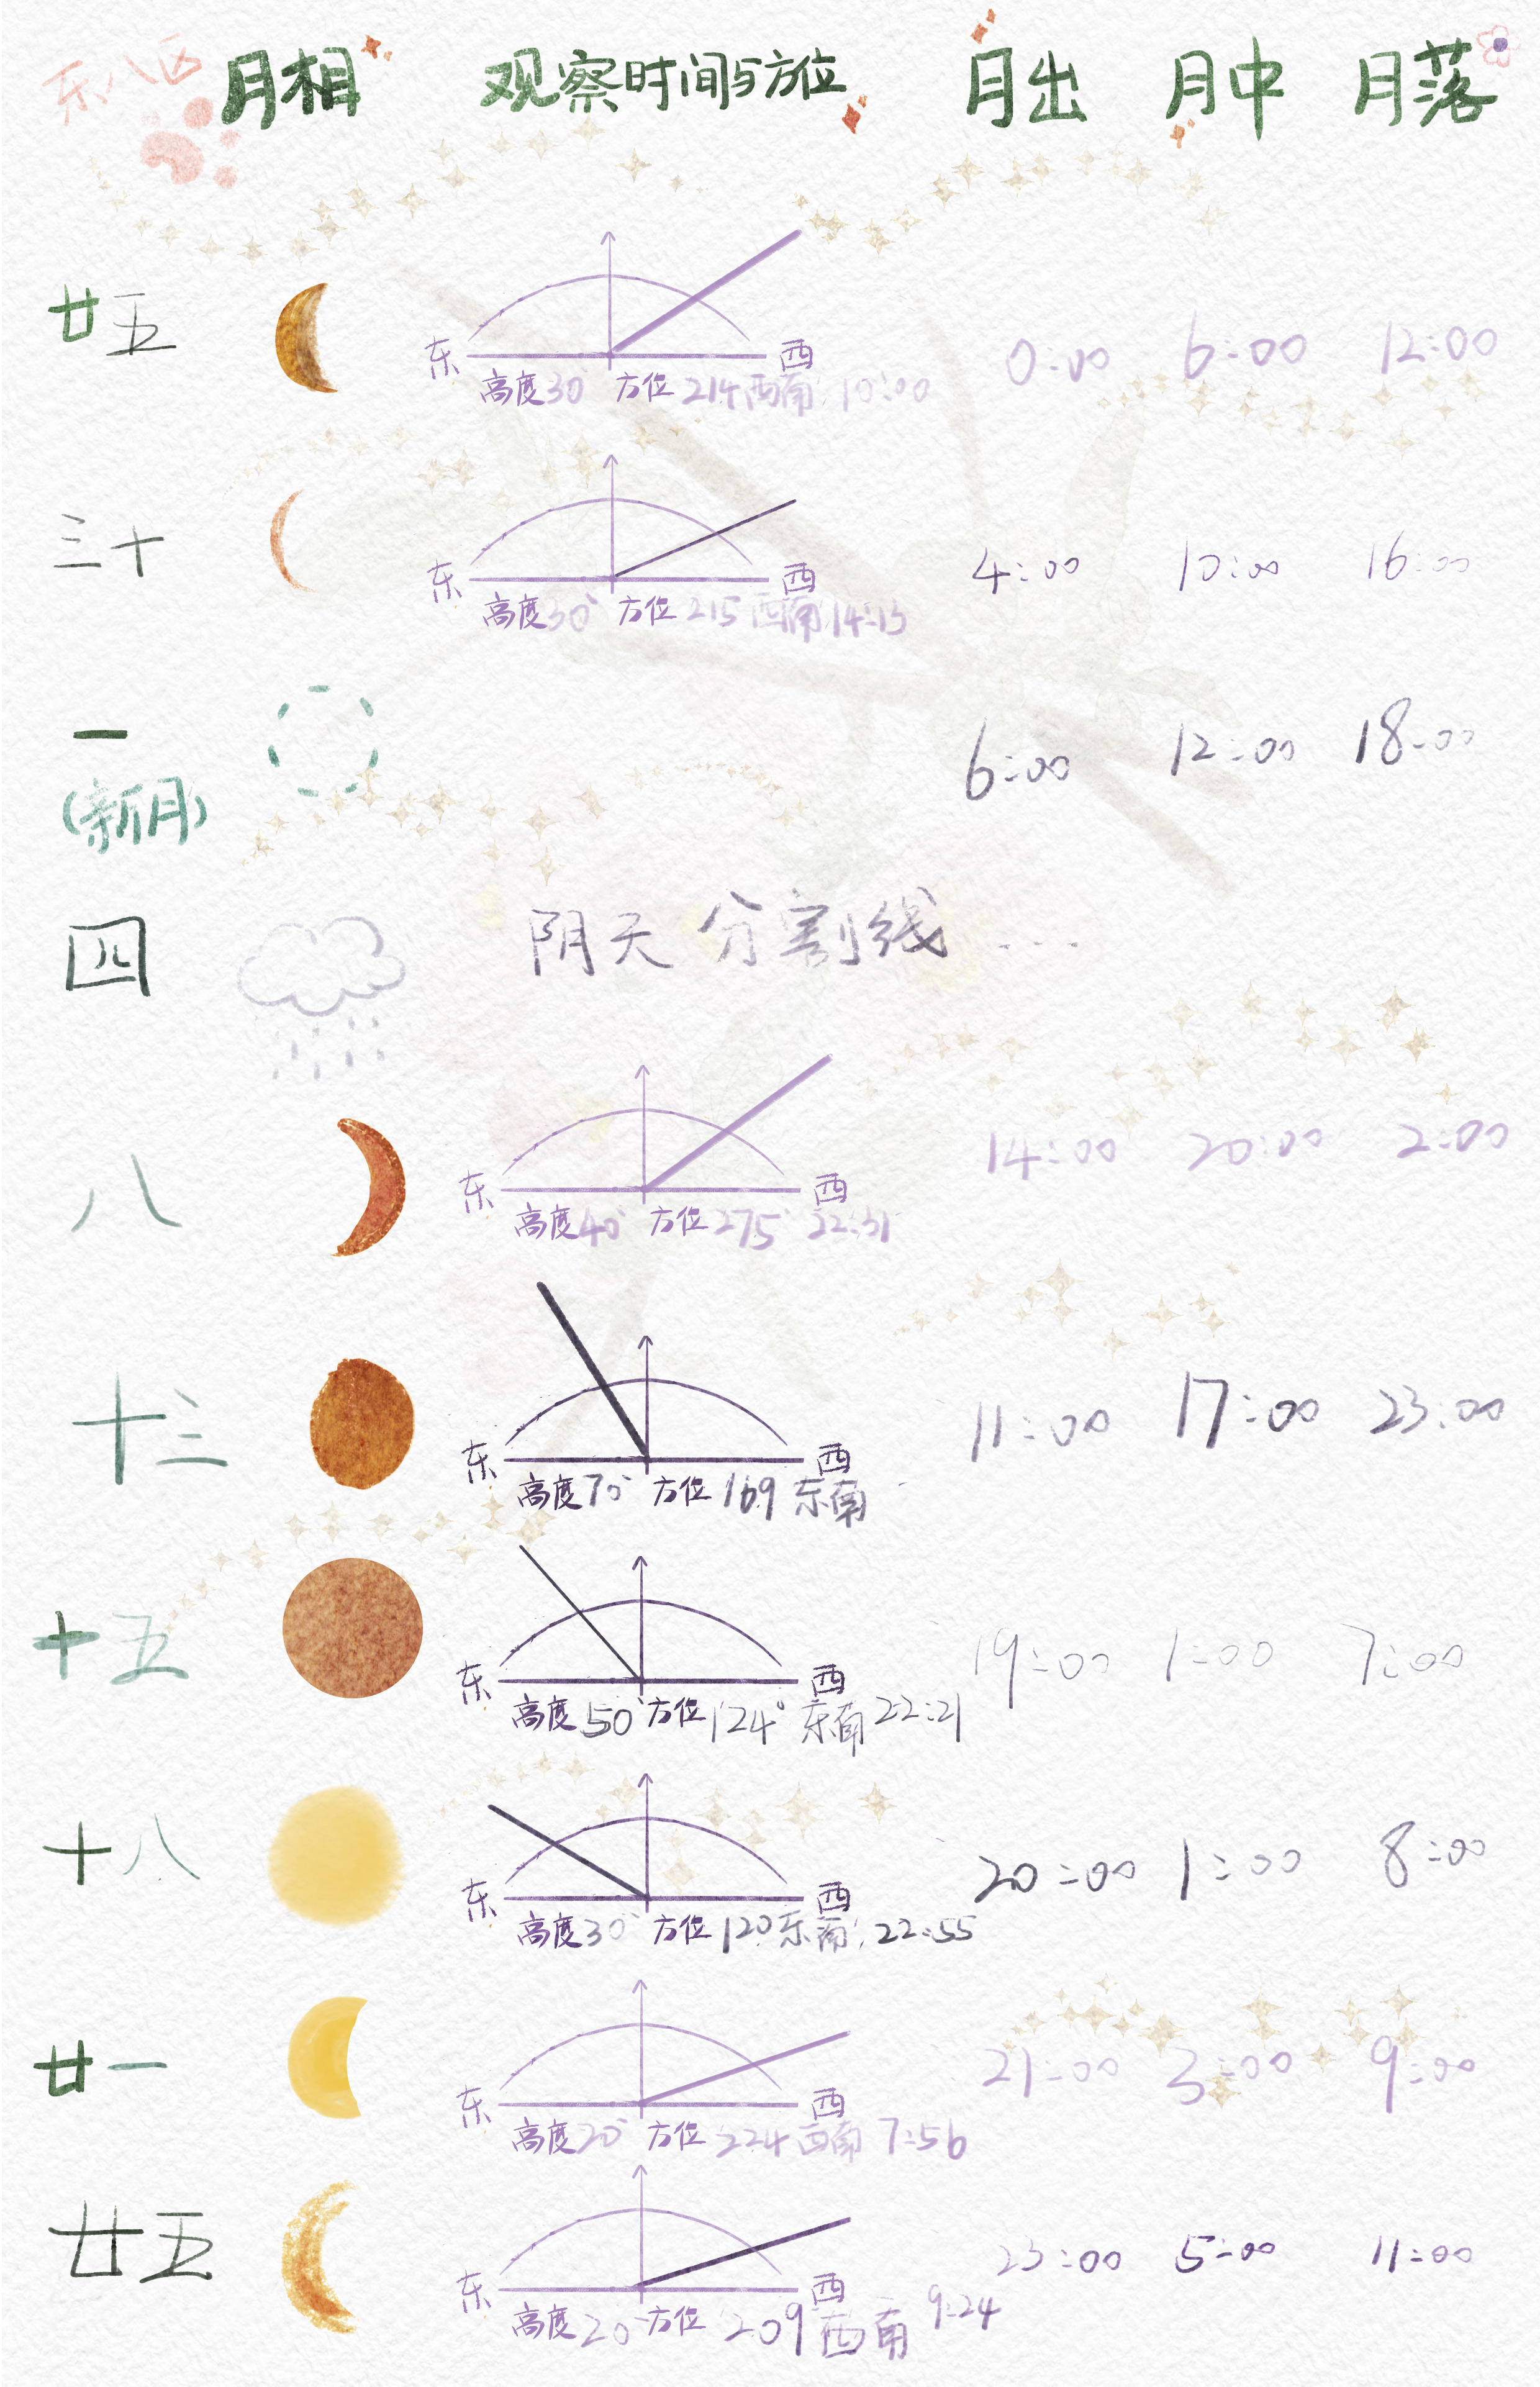 东八区 月相 观察时间与方位 月出 月中 月落
廿五 东 西 0:00 6:00 12:00
高度30° 方位 214西南 10:00
三十 东 西 4:00 10:00 16:00
高度30° 方位 215 西南 14:13
一 6:00 12:00 18:00
(新月)
四 阴天 分割线 ....
八 东 西 14:00 20:00 2:00
高度40° 方位 275° 22:31
十三 东 西 11:00 17:00 23:00
高度70° 方位 169 东南
十五 东 西 19:00 1:00 7:00
高度50° 方位124° 东南 22:21
十八 东 西 20:00 1:00 8:00
高度30° 方位 120东南 22:55
廿一 东 西 21:00 3:00 9:00
高度20° 方位 224 西南 7:56
廿五 东 西 23:00 5:00 11:00
高度20° 方位 209 西南 9:24